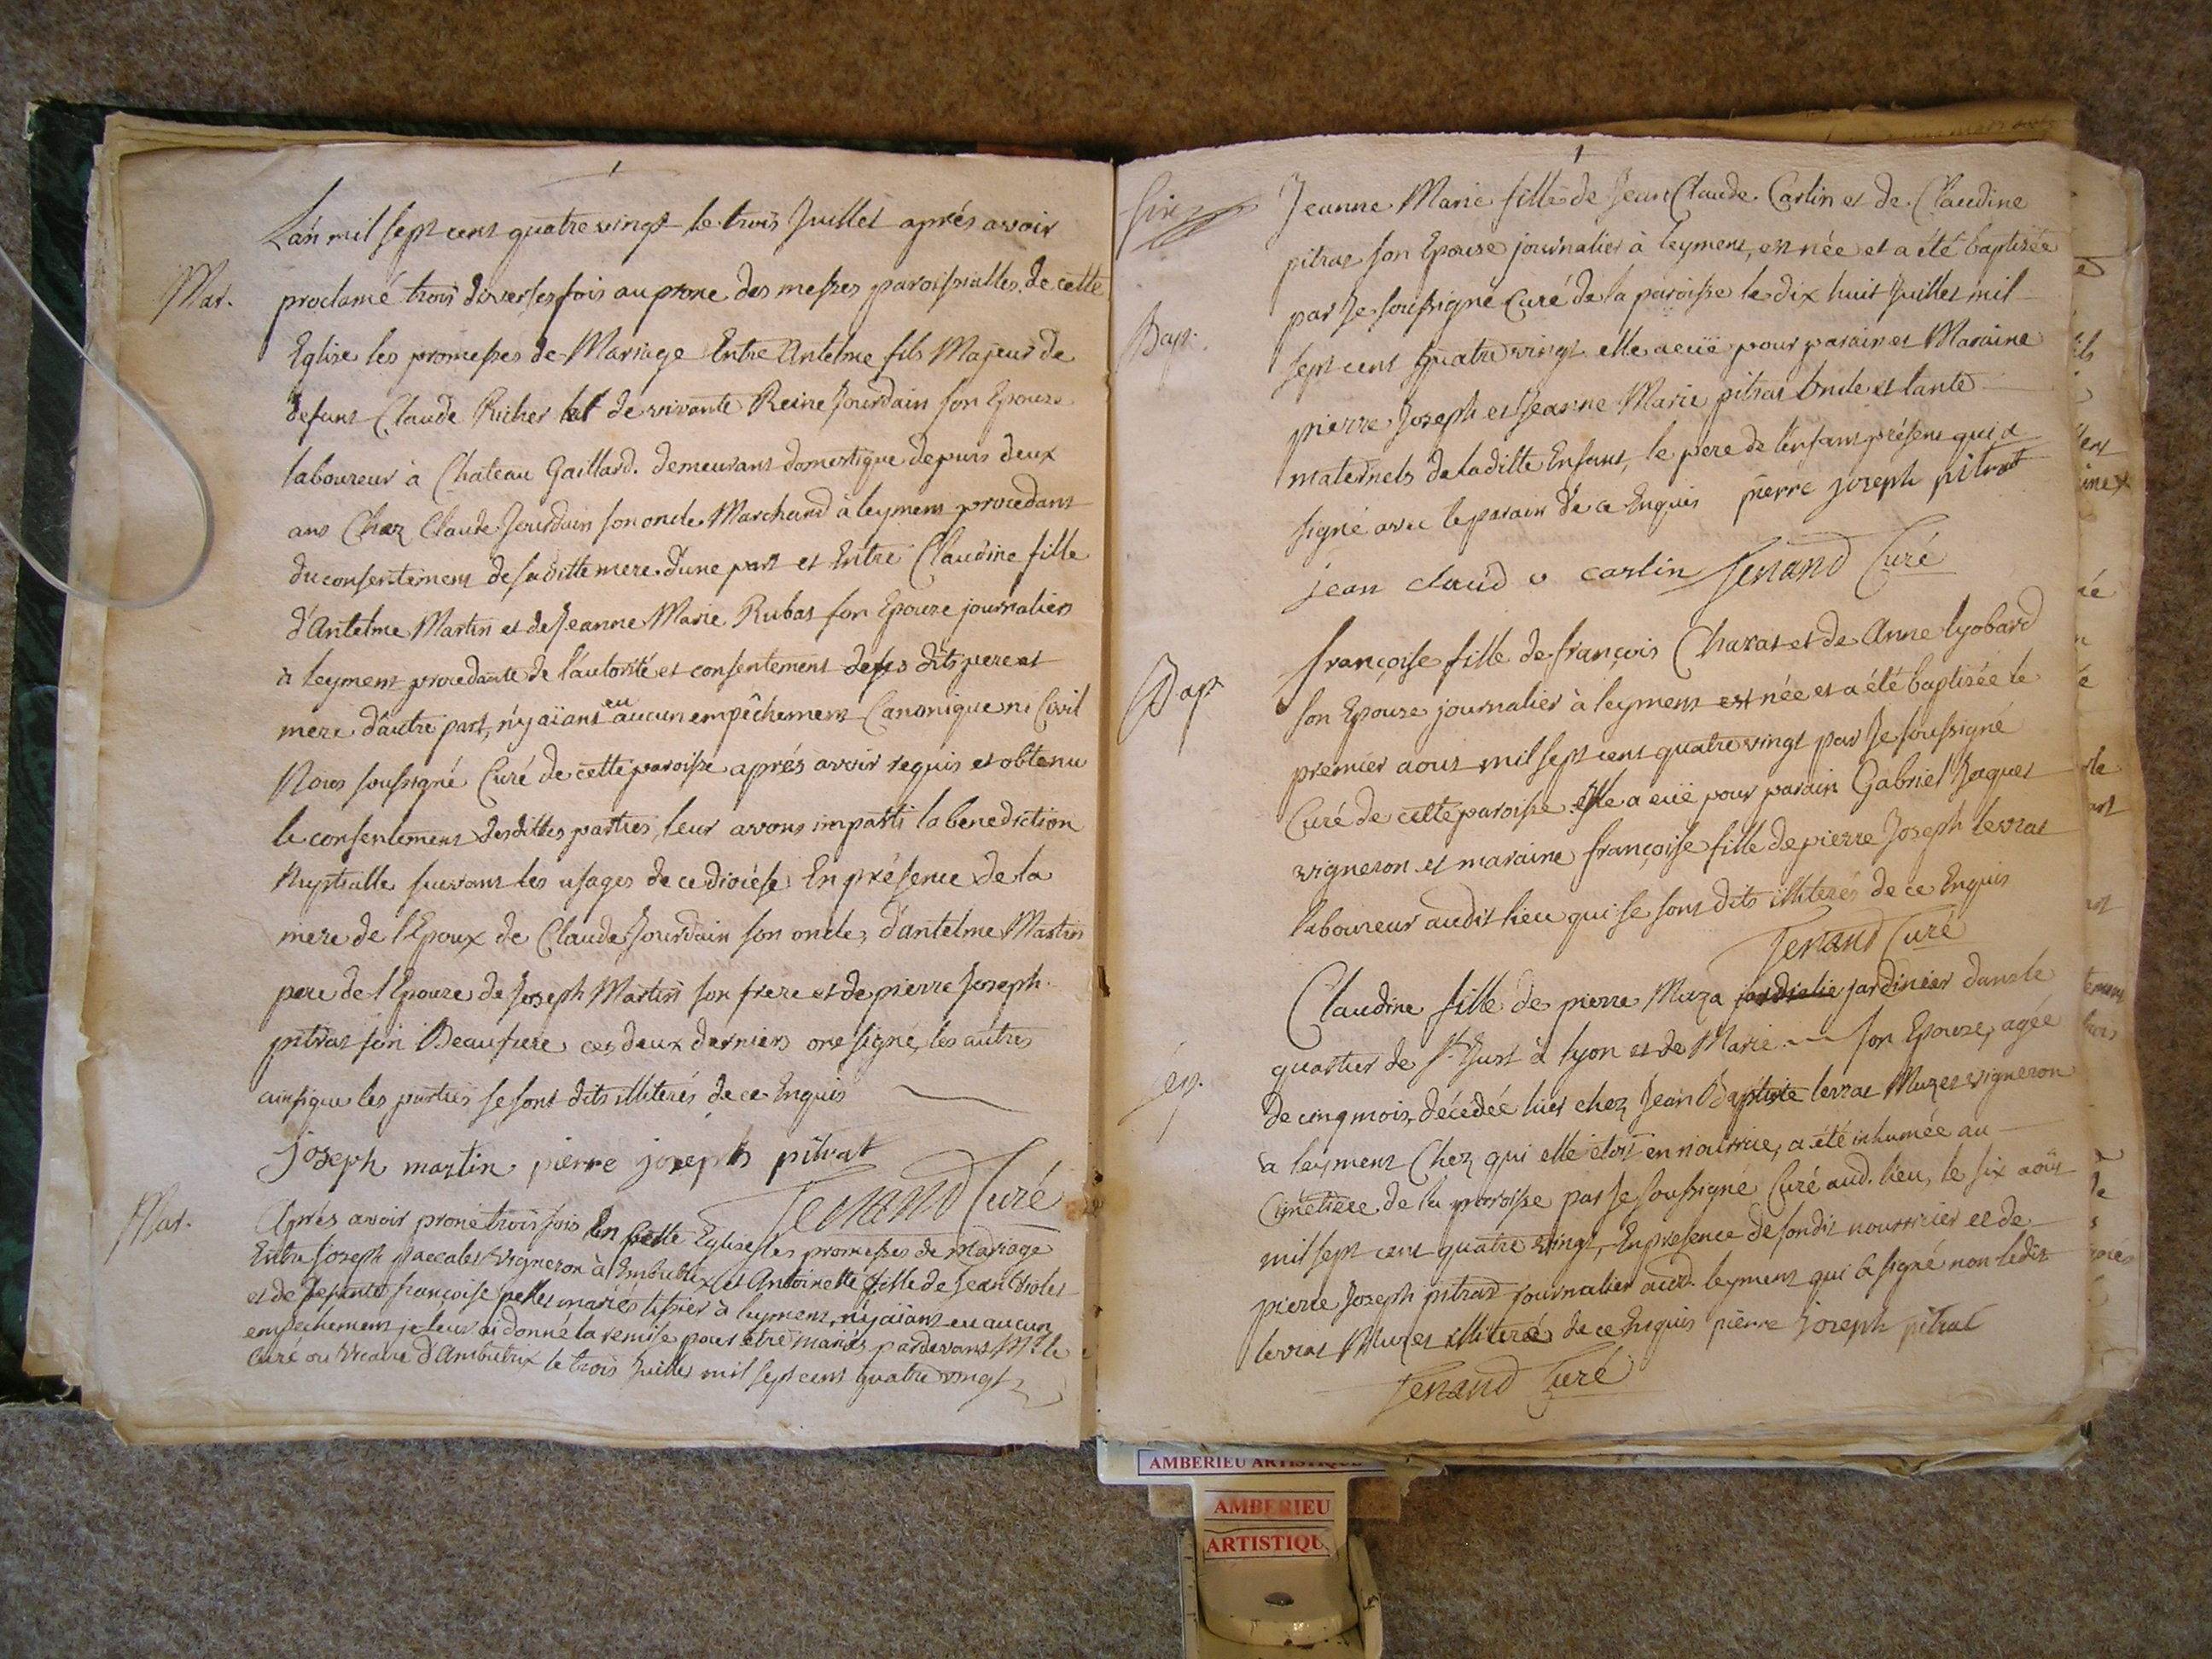 L'an mil sept cent quatre vingt le trois Juillet aprés avoir
Mar.
proclamé trois diverses fois au prone des messes paroissialles de cette
Eglise les promesses de Mariage Entre Antelme fils Majeur de
defunt Claude Richer et de vivante Reine Jourdain son Epouse
laboureur à Chateau Gaillard. demeurant domestique depuis deux
ans Chez Claude Jourdain son oncle Marchand à leyment procedant
du consentement de sa ditte mere d'une part et Entre Claudine fille
d'Antelme Martin et de Jeanne Marie Rubat son Epouse journaliers
à leyment procedante de l'autorité et consentement de ses dits pere et
mere d'autre part, n'y aïant eu aucun empêchement Canonique ni Civil
Nous soussigné Curé de cette paroisse aprés avoir requis et obtenu
le consentement desdittes parties, leur avons imparti la benediction
Nuptialle suivant les usages de ce diocése En présence de la
mere de l'Epoux de Claude Jourdain son oncle, d'antelme Martin
pere de l'Epouze de Joseph Martin son frere et de pierre Joseph
pitrat son Beaufrere ces deux derniers ont signé, les autres
ainsi que les parties se sont dits illiterés de ce Enquis
joseph martin pierre joseph pitrat
Mar.
Fenand Curé
Aprés avoir proné trois fois En cette Eglise les promesses de Mariage
Entre Joseph vigneron à Embutrix et Antoinette fille de Jean
et de françoise mariés tissier à leyment, n'y aïant eu aucun
empechement je leur ai donné la remise pour etre mariés pardevant Mr le
Curé ou Vicaire d'Ambutrix le trois Juillet mil sept cent quatre vingt
Jeanne Marie fille de Jean Claude Carlin et de Claudine
pitrat son Epouse journalier à leyment, est née et a été baptisée
Bap.
par Je soussigné Curé de la paroisse le dix huit Juillet mil
sept cent quatre vingt elle a eüe pour parain et Maraine
pierre Joseph et Jeanne Marie pitrat Oncle et tante
maternels de laditte Enfant, le pere de l'enfant présent qui a
signé avec le parain de ce Enquis pierre joseph pitrat
jean claud carlin Fenand Curé
Bap.
françoise fille de françois Charat et de Anne lyobard
son Epouse journalier à leyment est née et a été baptisée le
premier aout mil sept cent quatre vingt par Je soussigné
Curé de cette paroisse Elle a eüe pour parain Gabriel Jaquet
vigneron et maraine françoise fille de pierre Joseph levrat
laboureur audit lieu qui se sont dits illiterés de ce Enquis
Fenand Curé
Claudine fille de pierre Muza jardinier dans le
Sep.
quartier de St Just à lyon et de Marie son Epouse, agée
de cinq mois, décédée hier chez Jean Baptiste levrat Muzet vigneron
à leyment Chez qui elle etoit en nourrice, a été inhumée au
Cimetiere de la paroisse par Je soussigné Curé aud. lieu, le six aoüt
mil sept cent quatre vingt, En presence de sondit nourricier et de
pierre Joseph pitrat journalier aud. leyment qui a signé non ledit
levrat Muzet illiteré de ce Enquis pierre joseph pitrat
Fenand Curé
AMBERIEU ARTISTIQUE
AMBERIEU
ARTISTIQU